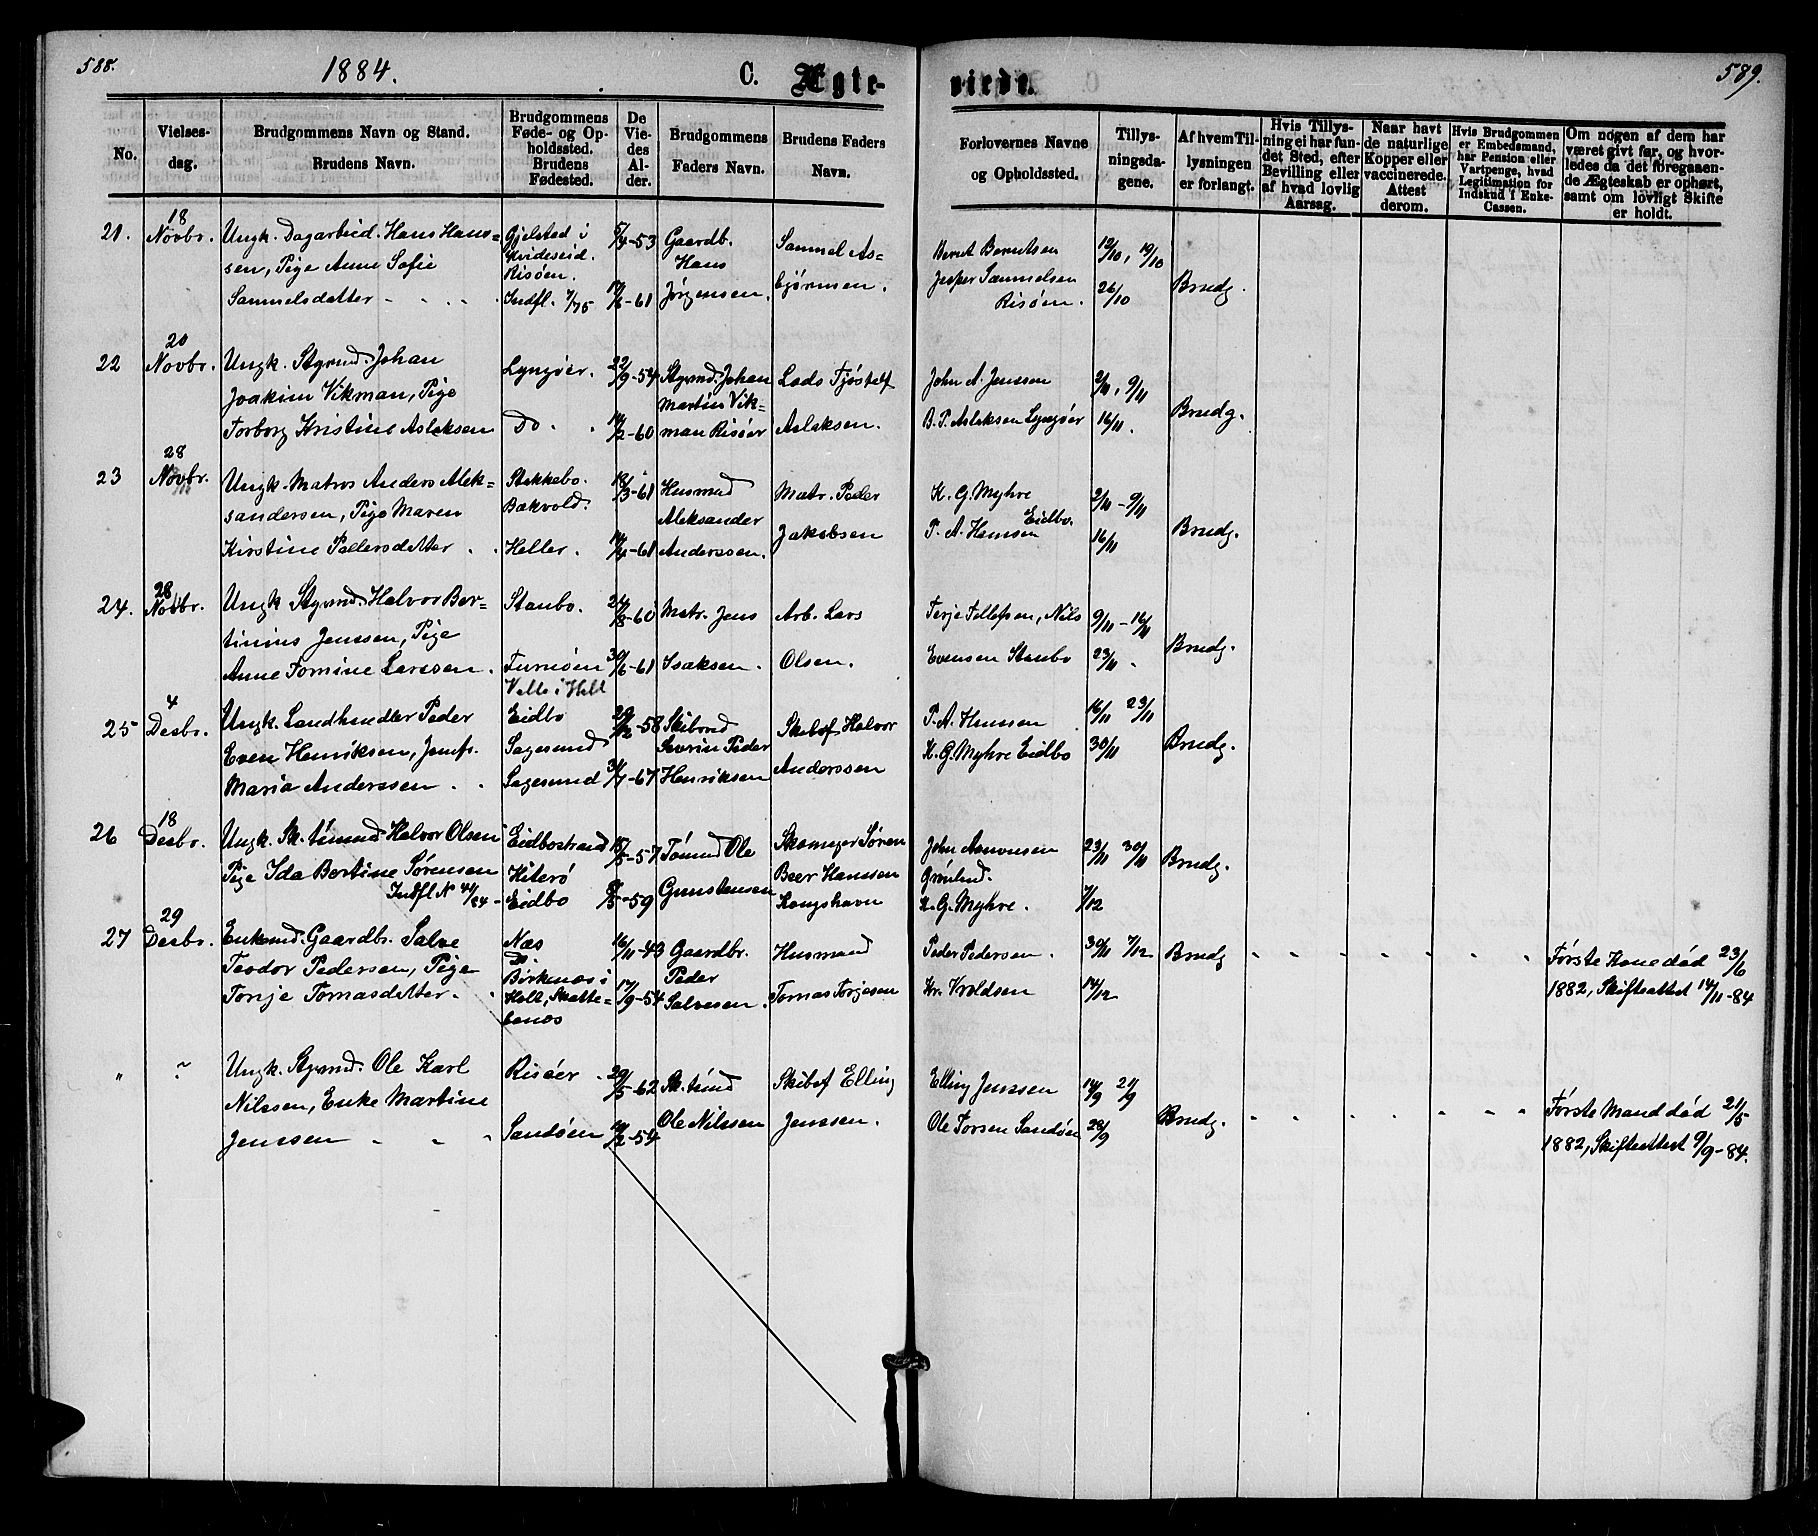 588.
1884.
C. Ægte-
viede.
589.
No.
Vielses-
dag.
Brudgommens Navn og Stand.
Brudens Navn.
Brudgommens
Føde- og Op-
holdssted.
Brudens
Fødested.
De
Vie-
des
Al-
der.
Brudgommens
Faders Navn.
Brudens Faders
Navn.
Forlovernes Navne
og Opholdssted.
Tillys-
ningsda-
gene.
Af hvem Til-
lysningen
er forlangt.
Hvis Tillys-
ning ei har fun-
det Sted, efter
Bevilling eller
af hvad lovlig
Aarsag.
Naar havt
de naturlige
Kopper eller
vaccinerede.
Attest
derom.
Hvis Brudgommen
er Embedsmand,
har Pension eller
Vartpenge, hvad
Legitimation for
Indskud i Enke-
Cassen.
Om nogen af dem har
været givt før, og hvor-
ledes da det foregaaen-
de Ægteskab er ophørt,
samt om lovligt Skifte
er holdt.
21.
18
Novbr.
Ungk. Dagarbeid. Hans Hans=
sen, Pige Anne Sofie
Samuelsdatter - - - -
Gjelstad i
Hvideseid.
Risøen.
Indfl. 7/75
5/4-53
/6-61
Gaardb.
Hans
Jørgensen.
Samuel As-
bjørnsen.
Bernt Berntsen
Jesper Samuelsen
Risøen.
12/10, 19/10
26/10
Brudg.
22
20
Novbr.
Ungk. Styrmd. Johan
Joakim Vikman, Pige
Torborg Kristine Aslaksen
Lyngøer.
Do
22/9-54
14/2-60
Styrmd. Johan
Martin Vik=
man Risøer
Lods Tjøstelf
Aslaksen.
John A. Jenssen
B. T. Aslaksen Lyngøer
2/11, 9/11
16/11.
Brudg.
23
28
Novbr.
Ungk. Matros Anders Alek=
sandersen, Pige Maren
Kirstine Pedersdatter
Stakkebo.
Bakvold.
Heller.
18/3-61
14/4-61
Husmand
Aleksander
Anderssen.
Matr. Peder
Jakobsen
K. G. Myhre
Eidbo.
P. A. Hanssen
2/11 - 9/11
16/11
Brudg.
24.
28
Novbr.
Ungk Styrmd. Halvor Ber=
tinius Jenssen, Pige
Anne Tomine Larssen.
Staubo.
Furuøen
Velle i Holt
24/8-60
30/6-61
Matr. Jens
Isaksen.
Arb. Lars
Olsen.
Terje Tellefsen, Nils
Evensen Staubo
9/11 - 16/11
23/11.
Brudg.
25
4
Desbr.
Ungk. Landhandler Peder
Even Henriksen, Jomfr.
Maria Anderssen
Eidbo
Sagesund
Sagesund
-58
31/7-67
Skibsrd
Severin Peder
Henriksen
Skibsf Halvor
Anderssen
P. A. Hanssen
K. G. Myhre Eidbo
16/11 23/11
30/11
Brudg.
26
18
Desbr.
Ungk. Sk. tömmd Halvor Olsen
Pige Ida Bertine Sørensen
Indfl N 44/84 -
Eidbostrand
Hiterø
Eidbo
15/5-57
/5-59
Tømmd Ole
Gunstensen
Skomager Søren
Beer Hanssen
Kongshavn
John Aanonsen
Grønlnd.
K. G. Myhre.
23/11 30/11
7/12
Brudg.
27
29
Desbr.
Enkemd. Gaardbr. Salve
Teodor Pedersen, Pige
Tonje Tomasdatter.
Næs
Do.
Birkenæs i
Holt, Skatte=
benæs
16/11-43
17/9-54
Gaardbr.
Peder
Salvesen.
Husmand
Tomas Torjesen
Peder Pedersen.
Kr. Kroldsen
30/11 7/12
14/12
Brudg
- - - - - - -
Første Kone død 23/6
1882, Skifteattest 14/11-84
"
~
Ungk. Styrmd. Ole Karl
Nilssen, Enke Martine
Jenssen - - -
Risøer
Sandøen
29/5-62
14/2-54
Sk. tømd
Ole Nilssen
Skibsf Elling
Jenssen.
Elling Jenssen
Ole Torsen Sandøen
14/9 21/9
28/9
Brudg.
- - - - - - -
Første Mand død 21/5
1882, Skifteattest 9/9-84.